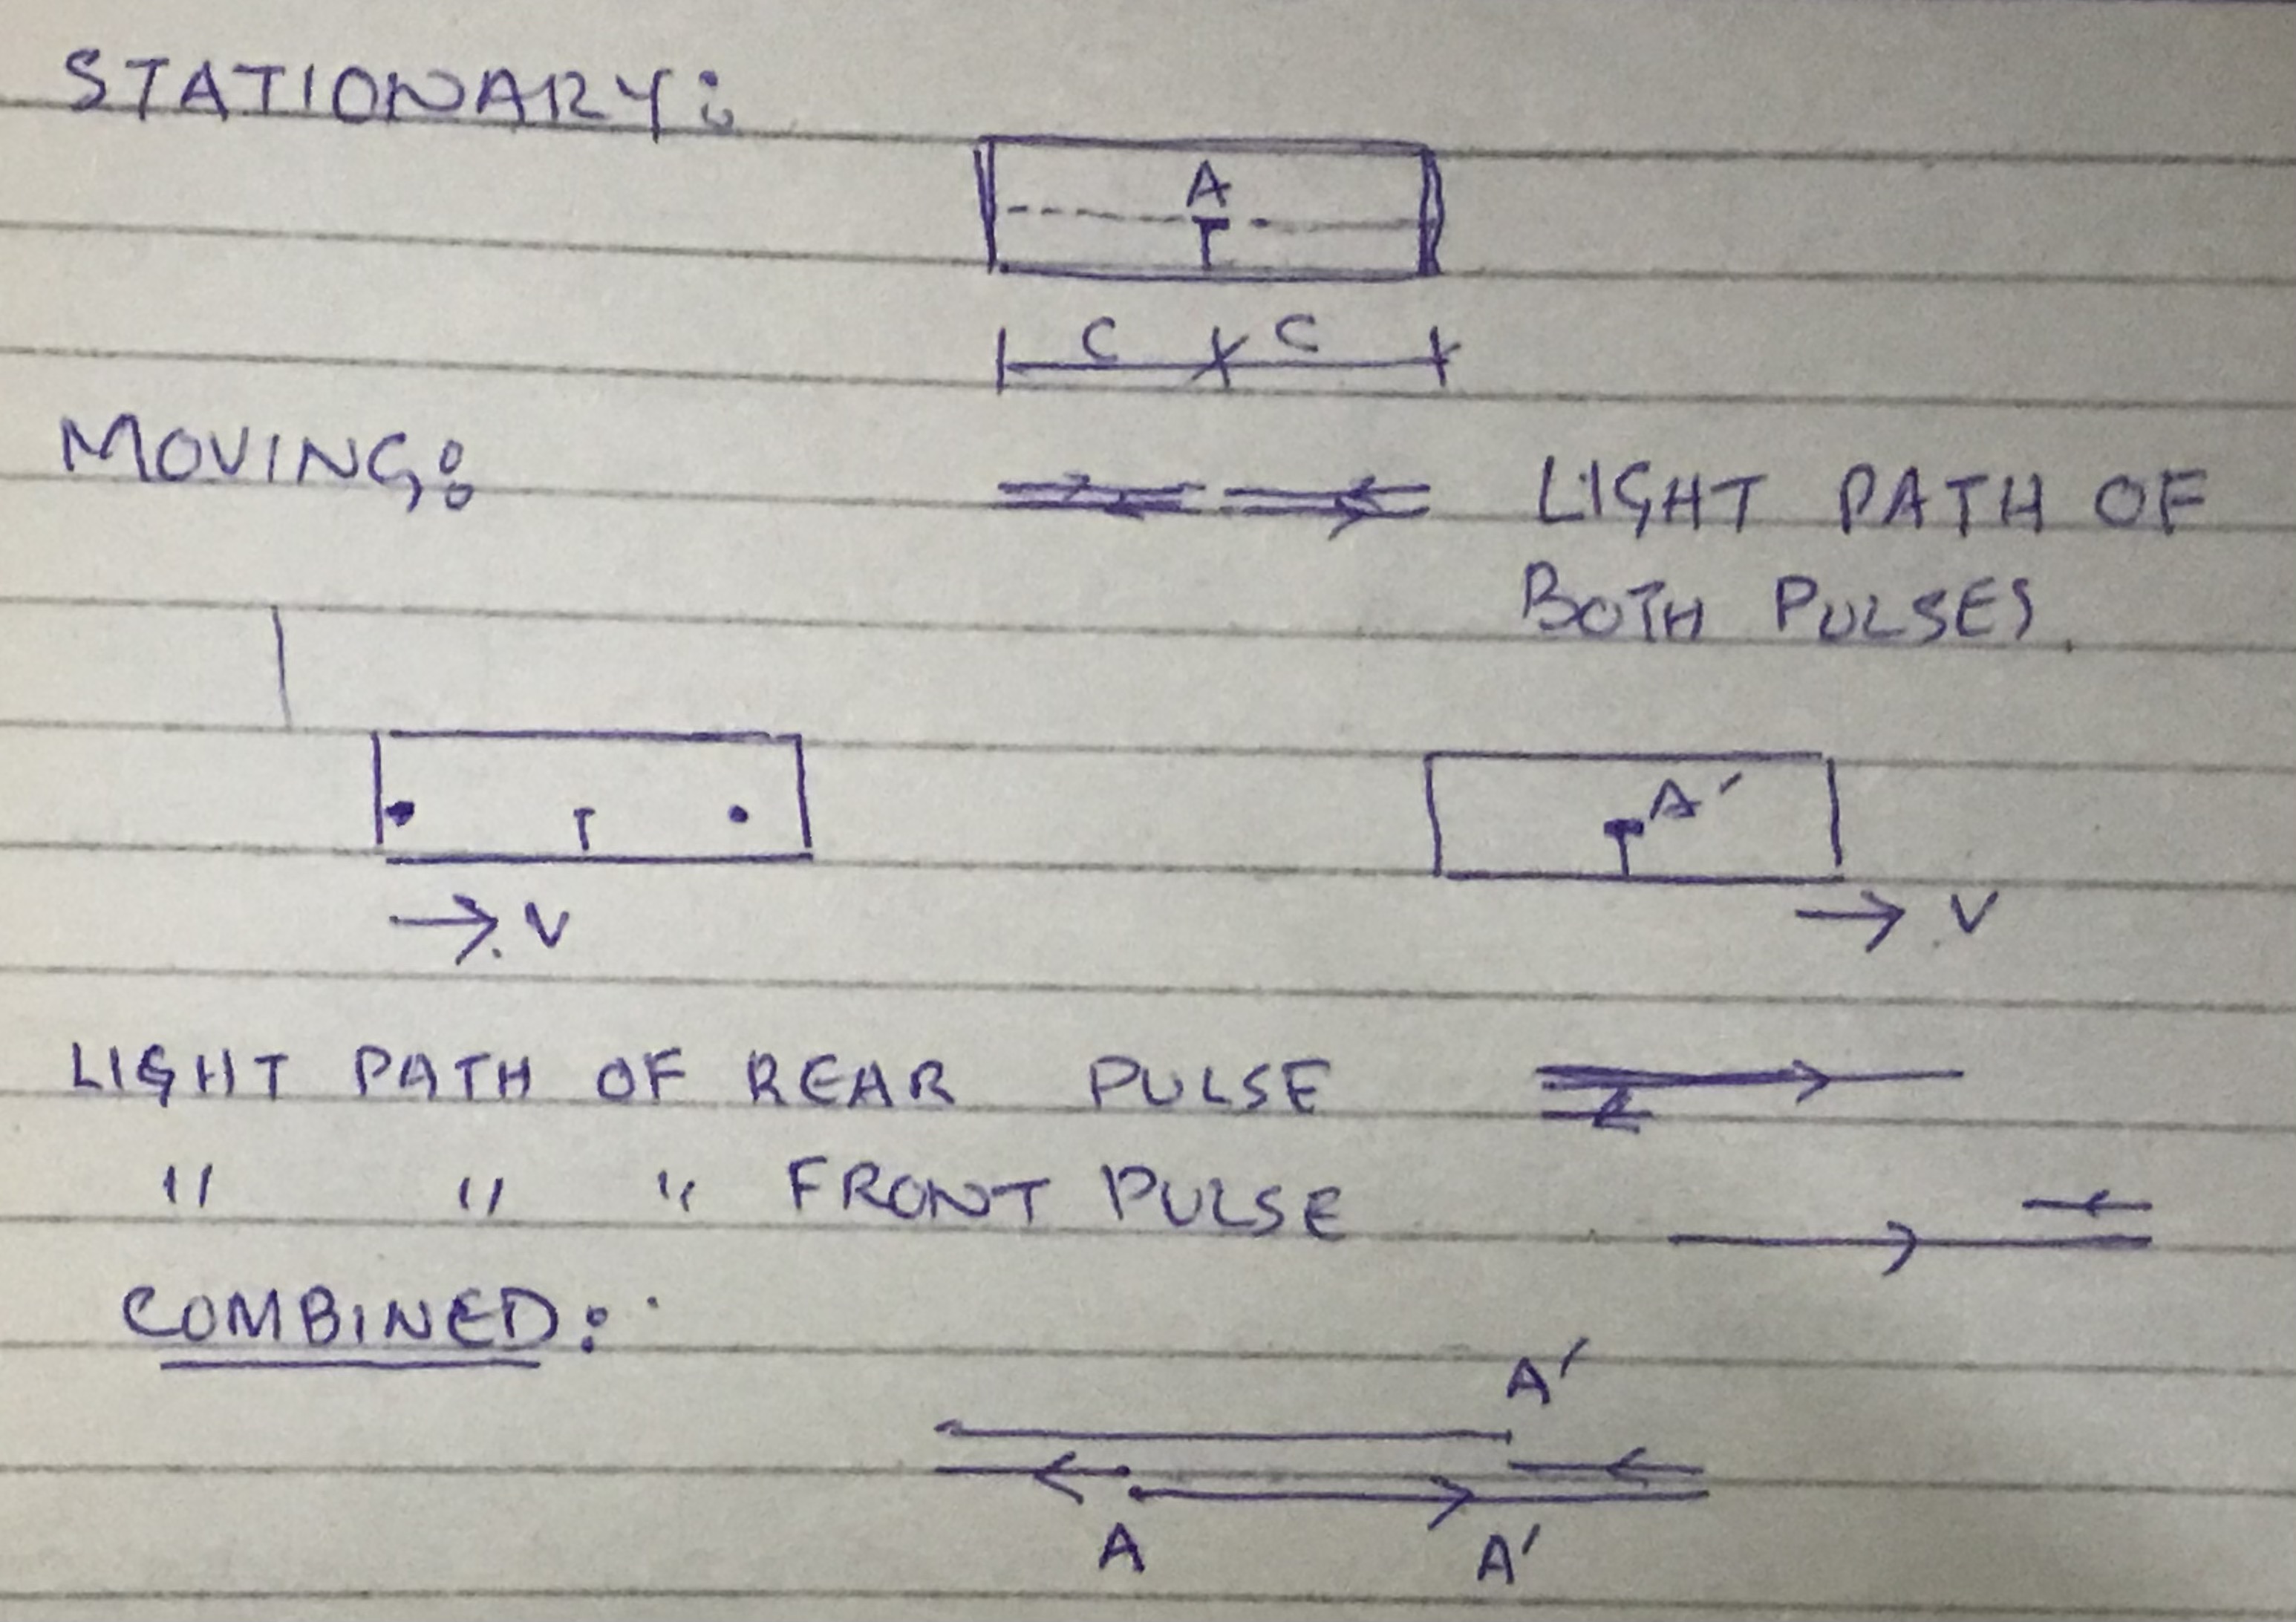 STATIONARY:
A
C C
MOVING: LIGHT PATH OF
BOTH PULSES.
A'
V V
LIGHT PATH OF REAR PULSE
" " " FRONT PULSE
COMBINED:
A'
A A'